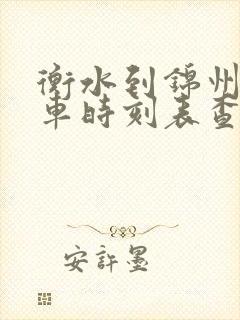 衡水到錦州
車時刻表查
安許墨